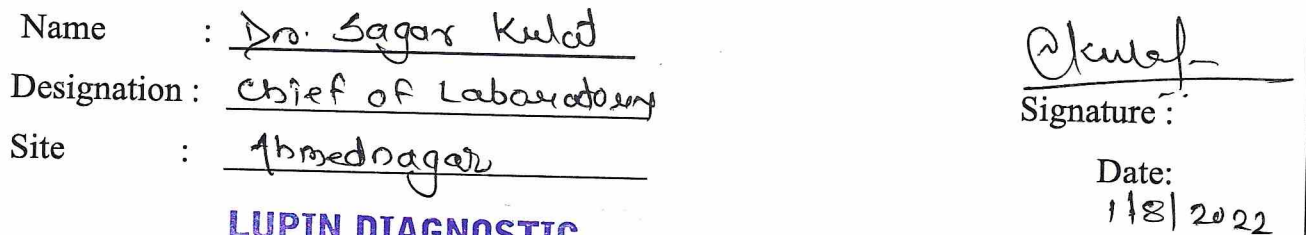 Name : Dr. Sagar Kulat
Designation : Chief of Laboratory
Site : Ahmednagar
LUPIN DIAGNOSTIC
Signature :
Date:
1/8/2022